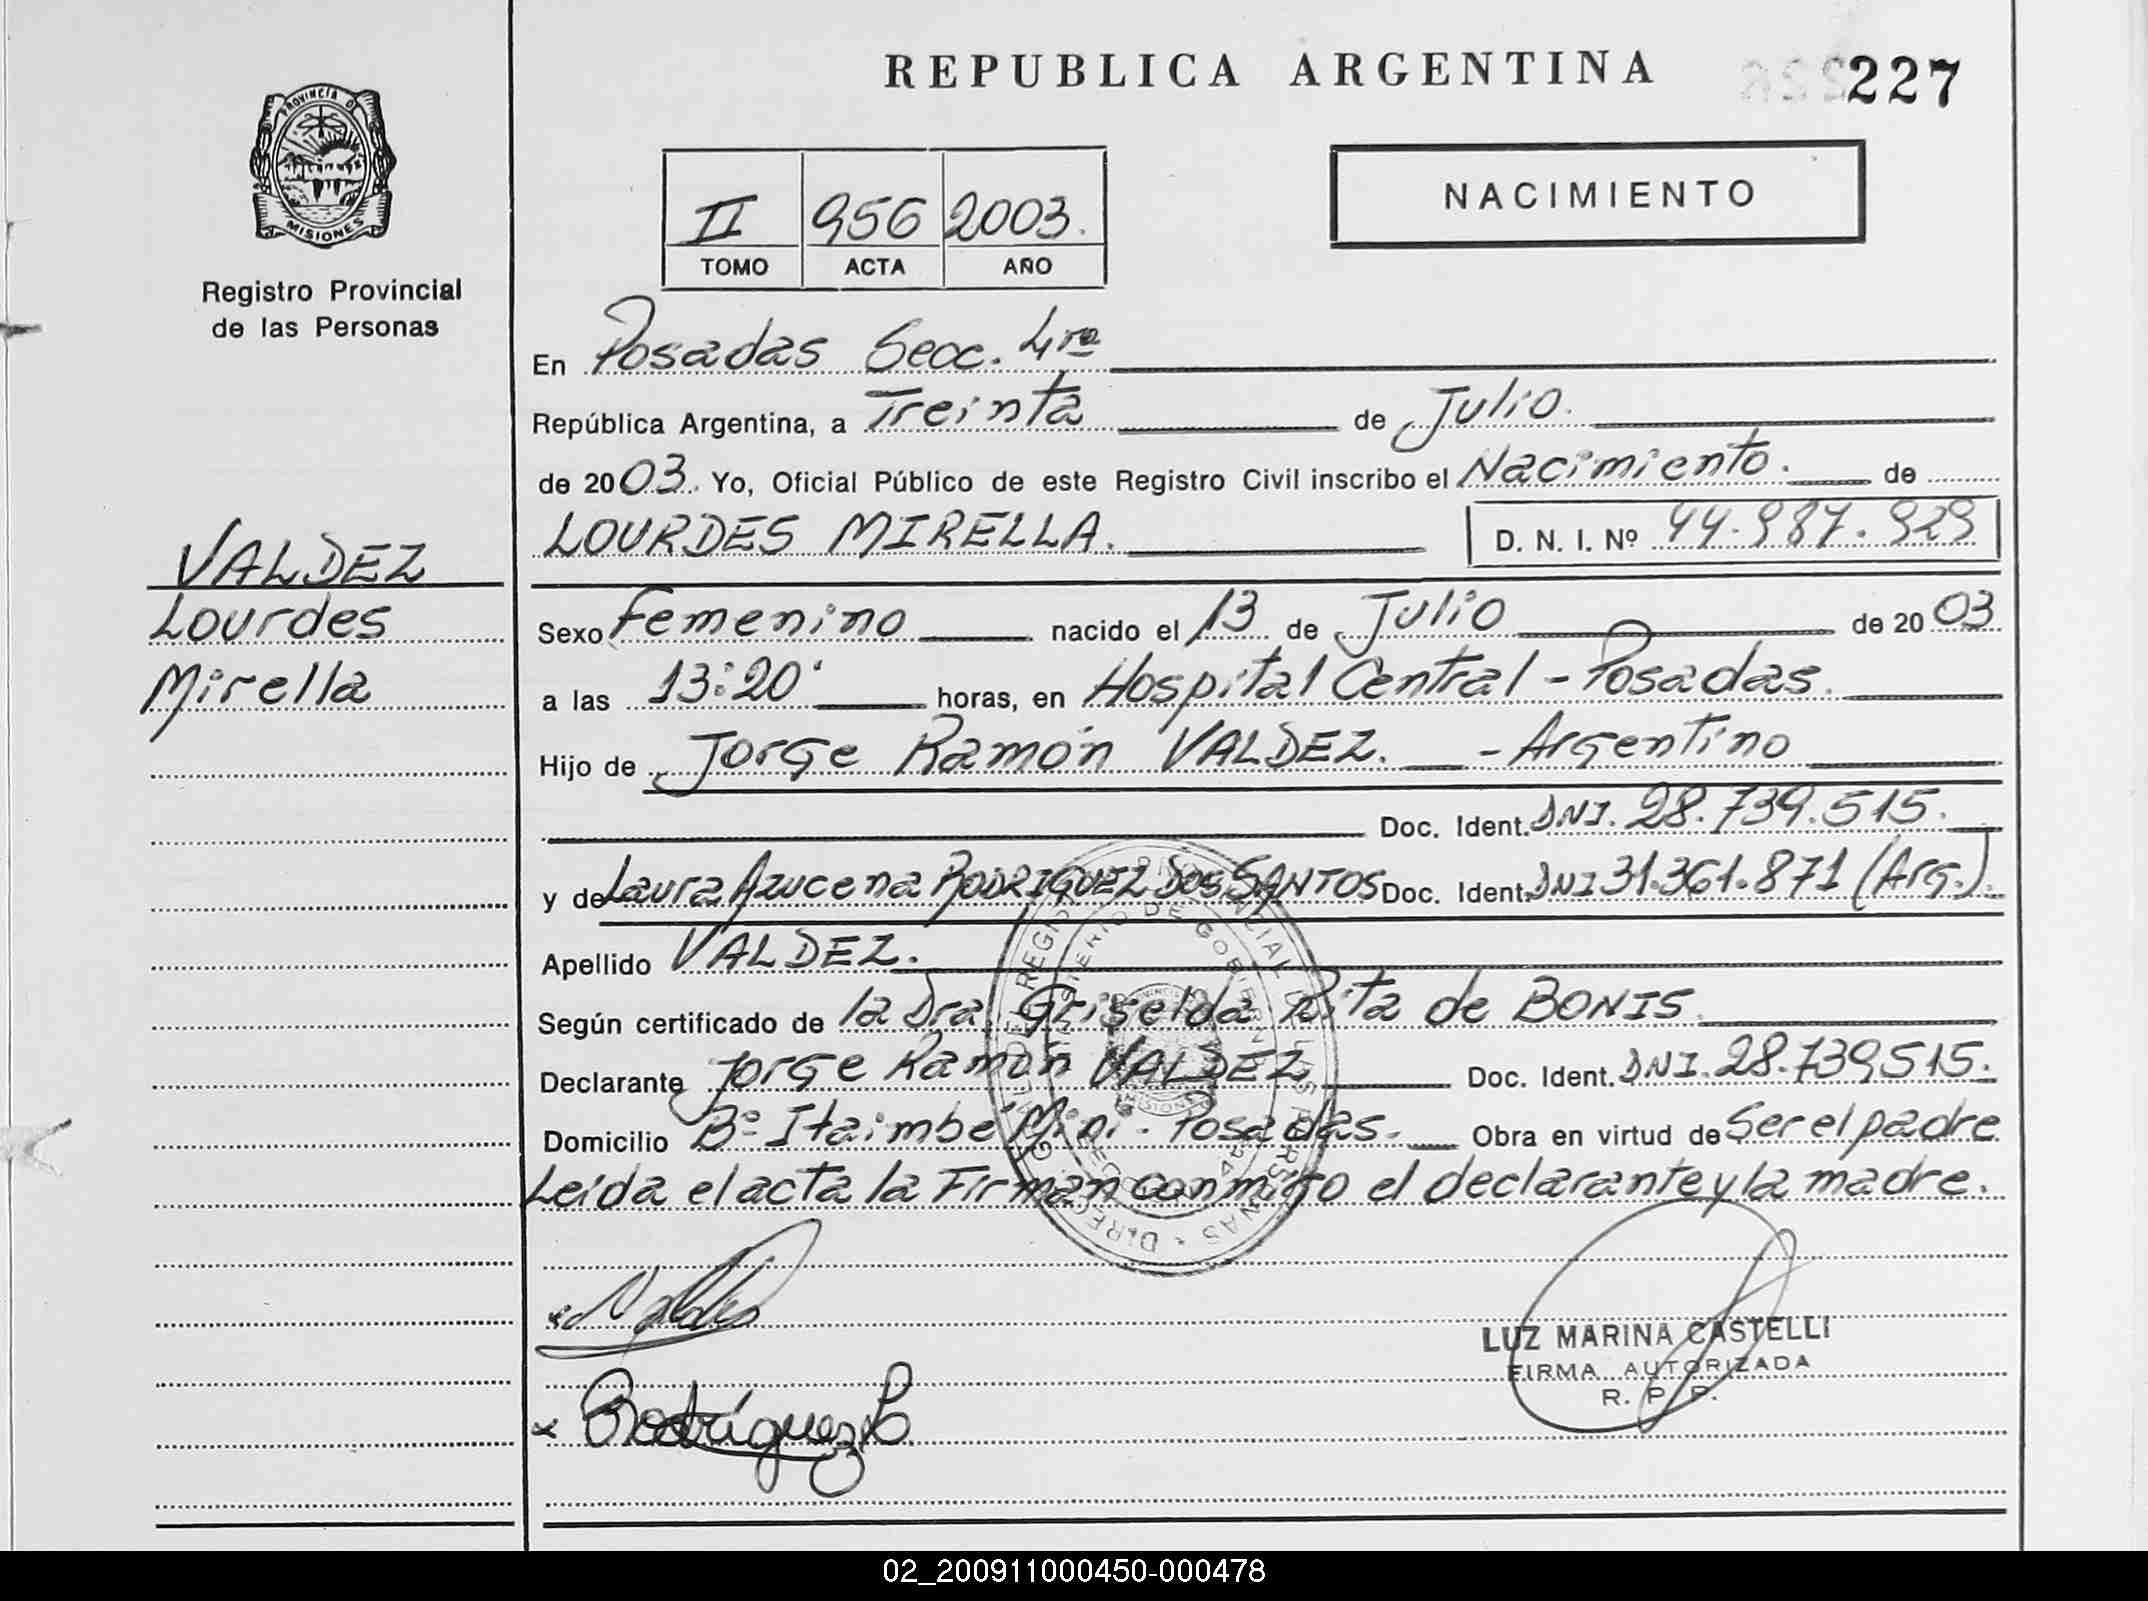 REPUBLICA ARGENTINA
227
PROVINCIA DE
MISIONES
Registro Provincial
de las Personas
NACIMIENTO
II 956 2003.
TOMO ACTA AÑO
En Posadas Secc. 4ra
República Argentina, a Treinta de Julio.
de 2003. Yo, Oficial Público de este Registro Civil inscribo el Nacimiento. de
LOURDES MIRELLA. D. N. I. Nº 44.987.929
VALDEZ
Lourdes
Mirella
Sexo Femenino nacido el 13 de Julio de 2003
a las 13:20' horas, en Hospital Central - Posadas.
Hijo de Jorge Ramón VALDEZ. - Argentino
Doc. Ident. DNI. 28.739.515.
y de Laura Azucena RODRIGUEZ DOS SANTOS Doc. Ident. DNI 31.361.871 (Arg.).
Apellido VALDEZ.
Según certificado de la Dra. Griselda Rita de BONIS.
Declarante Jorge Ramón VALDEZ Doc. Ident. DNI. 28.739.515.
Domicilio Bº Itaimbé Mini - Posadas. Obra en virtud de Ser el padre
Leída el acta la Firman conmigo el declarante y la madre.
LUZ MARINA CASTELLI
FIRMA AUTORIZADA
R. P. P.
Rodríguez L
02_200911000450-000478